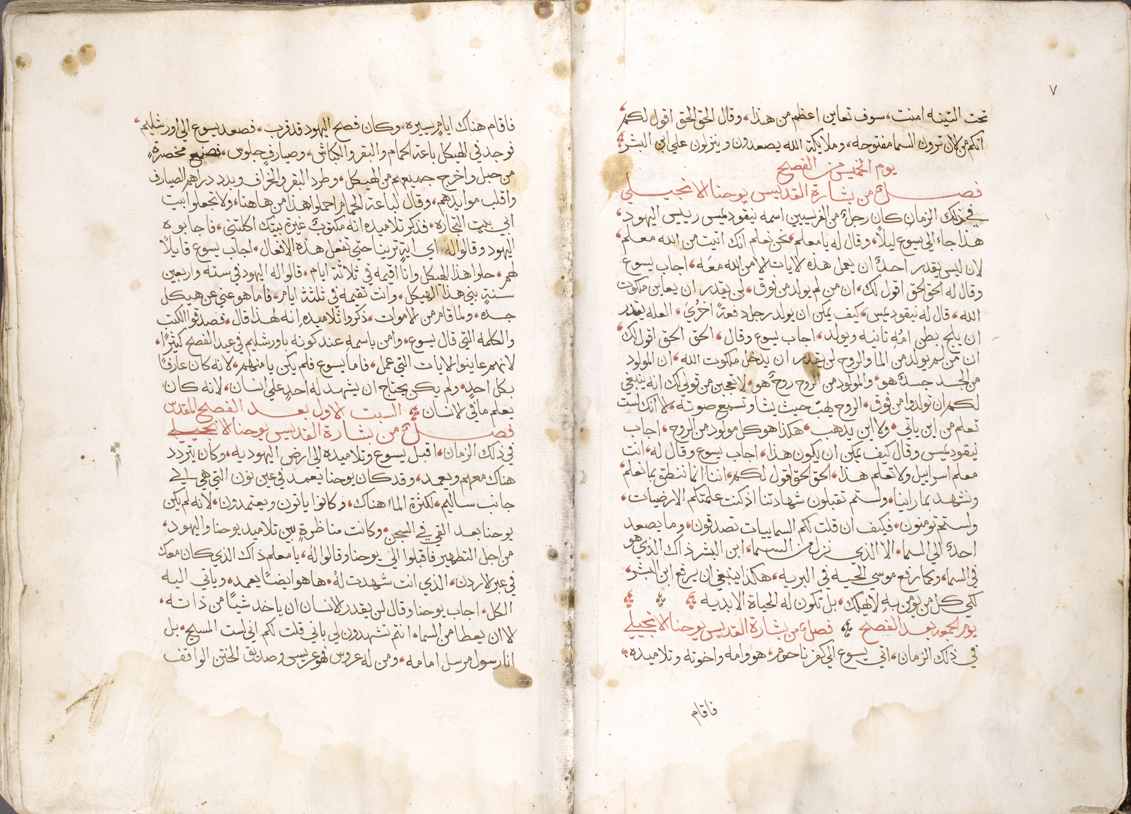 ٧
تحت التينه امنت، سوف تعاين اعظم من هذا، وقال الحق الحق اقول لكم
انكم من الان ترون السما مفتوحه، وملايكة الله يصعدون وينزلون علي ابن البشر
يوم الخميس من الفصح
فصل من بشارة القديس يوحنا الانجيلي
في ذلك الزمان كان رجلٌ من الفريسيين اسمه نيقوديمس رييس اليهود،
هذا جاء الي يسوع ليلاً، وقال له يا معلم، نحن نعلم انك اتيت من الله معلم
لان ليس يقدر احداً ان يعمل هذه الايات الا من الله معه، اجاب يسوع
وقال له الحق الحق اقول لك، ان من لم يولد من فوق، لن يقدر ان يعاين ملكوت
الله، قال له نيقوديمس، كيف يمكن ان يولد رجل دفعةً اخري، العله يقدر
ان يلج بطن امه ثانية ويولد، اجاب يسوع وقال، الحق الحق اقول لك
ان من لم يولد من الما والروح لن يقدر ان يدخل ملكوت الله، ان المولود
من الجسد جسدٌ هو، والمولود من الروح روحٌ هو، لا تعجبن من قولي لك انه ينبغي
لكم ان تولدوا من فوق، الروح تهبّ حيث يشا وتسمع صوته، الا انك لست
تعلم من اين ياتي، ولا اين يذهب، هكذا هو كل مولود من الروح، اجاب
نيقوديمس وقال كيف يمكن ان تكون هذا، اجاب يسوع وقال له، انت
معلم اسراييل ولا تعلم هذا، الحق الحق اقول لكم، اننا انما ننطق بما نعلم
ونشهد بما راينا، ولستم تقبلون شهادتنا، اذ كنت علمتكم الارضيات،
ولستم تومنون، فكيف ان قلت لكم السماييات تصدقون، وما يصعد
احدٌ الي السما، الا الذي نزل من السما، ابن البشر ذاك الذي هو
في السما، وكما رفع موسي الحيه في البريه، هكذا ينبغي ان يرفع ابن البشر،
لكي كل من يومن به لا يهلك، بل تكون له الحياة الابديه
يوم الجمعه بعد الفصح فصل من بشارة القديس يوحنا الانجيلي
في ذلك الزمان، اتي يسوع الي كفرناحوم، هو وامه واخوته وتلاميذه،
فاقام
فاقام هناك اياماً يسيره، وكان فصح اليهود قد قرب، فصعد يسوع الي اورشليم
فوجد في الهيكل باعة الحمام والبقر والكباش، وصيارف جلوس، فصنع مخصرة
من حبل واخرج جميعهم من الهيكل، وطرد البقر والخراف وبدد دراهم الصيارف
واقلب موايدهم، وقال لباعة الحمام احملوا هذا من هاهنا، ولا تجعلوا بيت
ابي بيت التجاره، فذكر تلاميذه انه مكتوبٌ غيرة بيتك اكلتني، فاجابوه
اليهود وقالوا له، اي اية ترينا حتي تفعل هذه الافعال، اجاب يسوع قايلاً
لهم، حلوا هذا الهيكل وانا اقيمه في ثلاثة ايام، قالوا له اليهود في ستة واربعين
سنةٍ بني هذا الهيكل، وانت تقيمه في ثلثة ايام، فاما هو عني عن هيكل
جسده، ولما قام من الاموات، ذكروا تلاميذه انه لهذا قال، فصدقوا الكتب
والكلمه التي قال يسوع، وامن باسمه عند كونه باورشليم في عيد الفصح كثيراً،
لانهم عاينوا الايات التي عمل، فاما يسوع فلم يكن يامنهم، لانه كان عارفاً
بكل احدٍ، ولم يكن يحتاج ان يشهد له احدٍ علي انسان، لانه كان
يعلم ما في الانسان السبت الاول بعد الفصح المقدس
فصل من بشارة القديس يوحنا الانجيلي
في ذلك الزمان، اقبل يسوع وتلاميذه الي ارض اليهوديه، وكان يتردد
هناك معهم ويعمد، وقد كان يوحنا يعمد في عين نون التي هي الي
جانب ساليم، لكثرة الماء هناك، وكانوا ياتون ويعتمدون، لانه لم يكن
يوحنا بعد القي في السجن، وكانت مناظرة بين تلاميد يوحنا واليهود،
من اجل التطهير فاقبلوا الي يوحنا وقالوا له، يا معلم ذاك الذي كان معك
في عبر الاردن، الذي انت شهدت له، ها هو ايضاً يعمد، وياتي اليه
الكل، اجاب يوحنا وقال لن يقدر الانسان ان ياخد شيئاً من ذاته،
الا ان يعطا من السما، انتم تشهدون لي باني قلت لكم اني لست المسيح، بل
انا رسول مرسل امامه، ومن له عروس فهو عريس، وصديق الختن الواقف